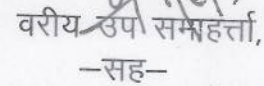 वरीय उप समाहर्त्ता,
–सह–